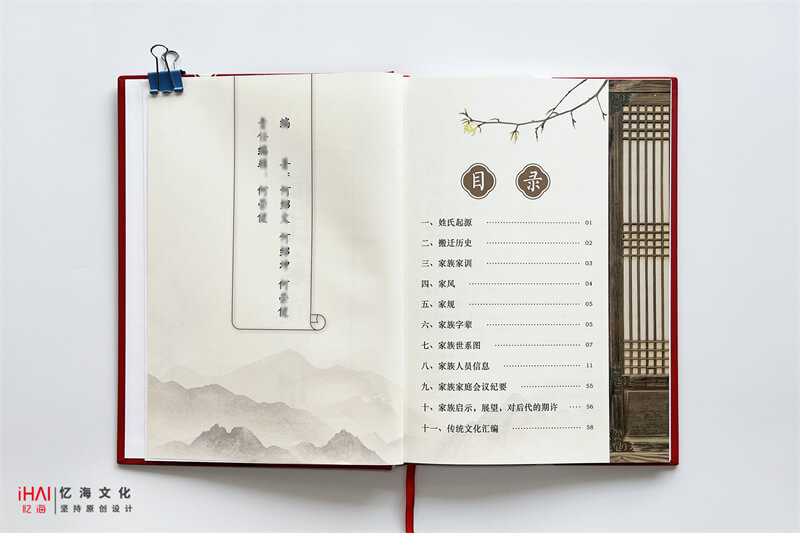 编 著：何绍文 何绍坤 何荣健
责任编辑：何荣健
目录
一、姓氏起源 ………………………… 01
二、搬迁历史 ………………………… 02
三、家族家训 ………………………… 03
四、家风 ………………………… 04
五、家规 ………………………… 05
六、家族字辈 ………………………… 05
七、家族世系图 ………………………… 07
八、家族人员信息 ………………………… 11
九、家族家庭会议纪要 ………………………… 55
十、家族启示，展望，对后代的期许 …… 56
十一、传统文化汇编 ………………………… 58
iHAI 忆海文化
忆海 坚持原创设计